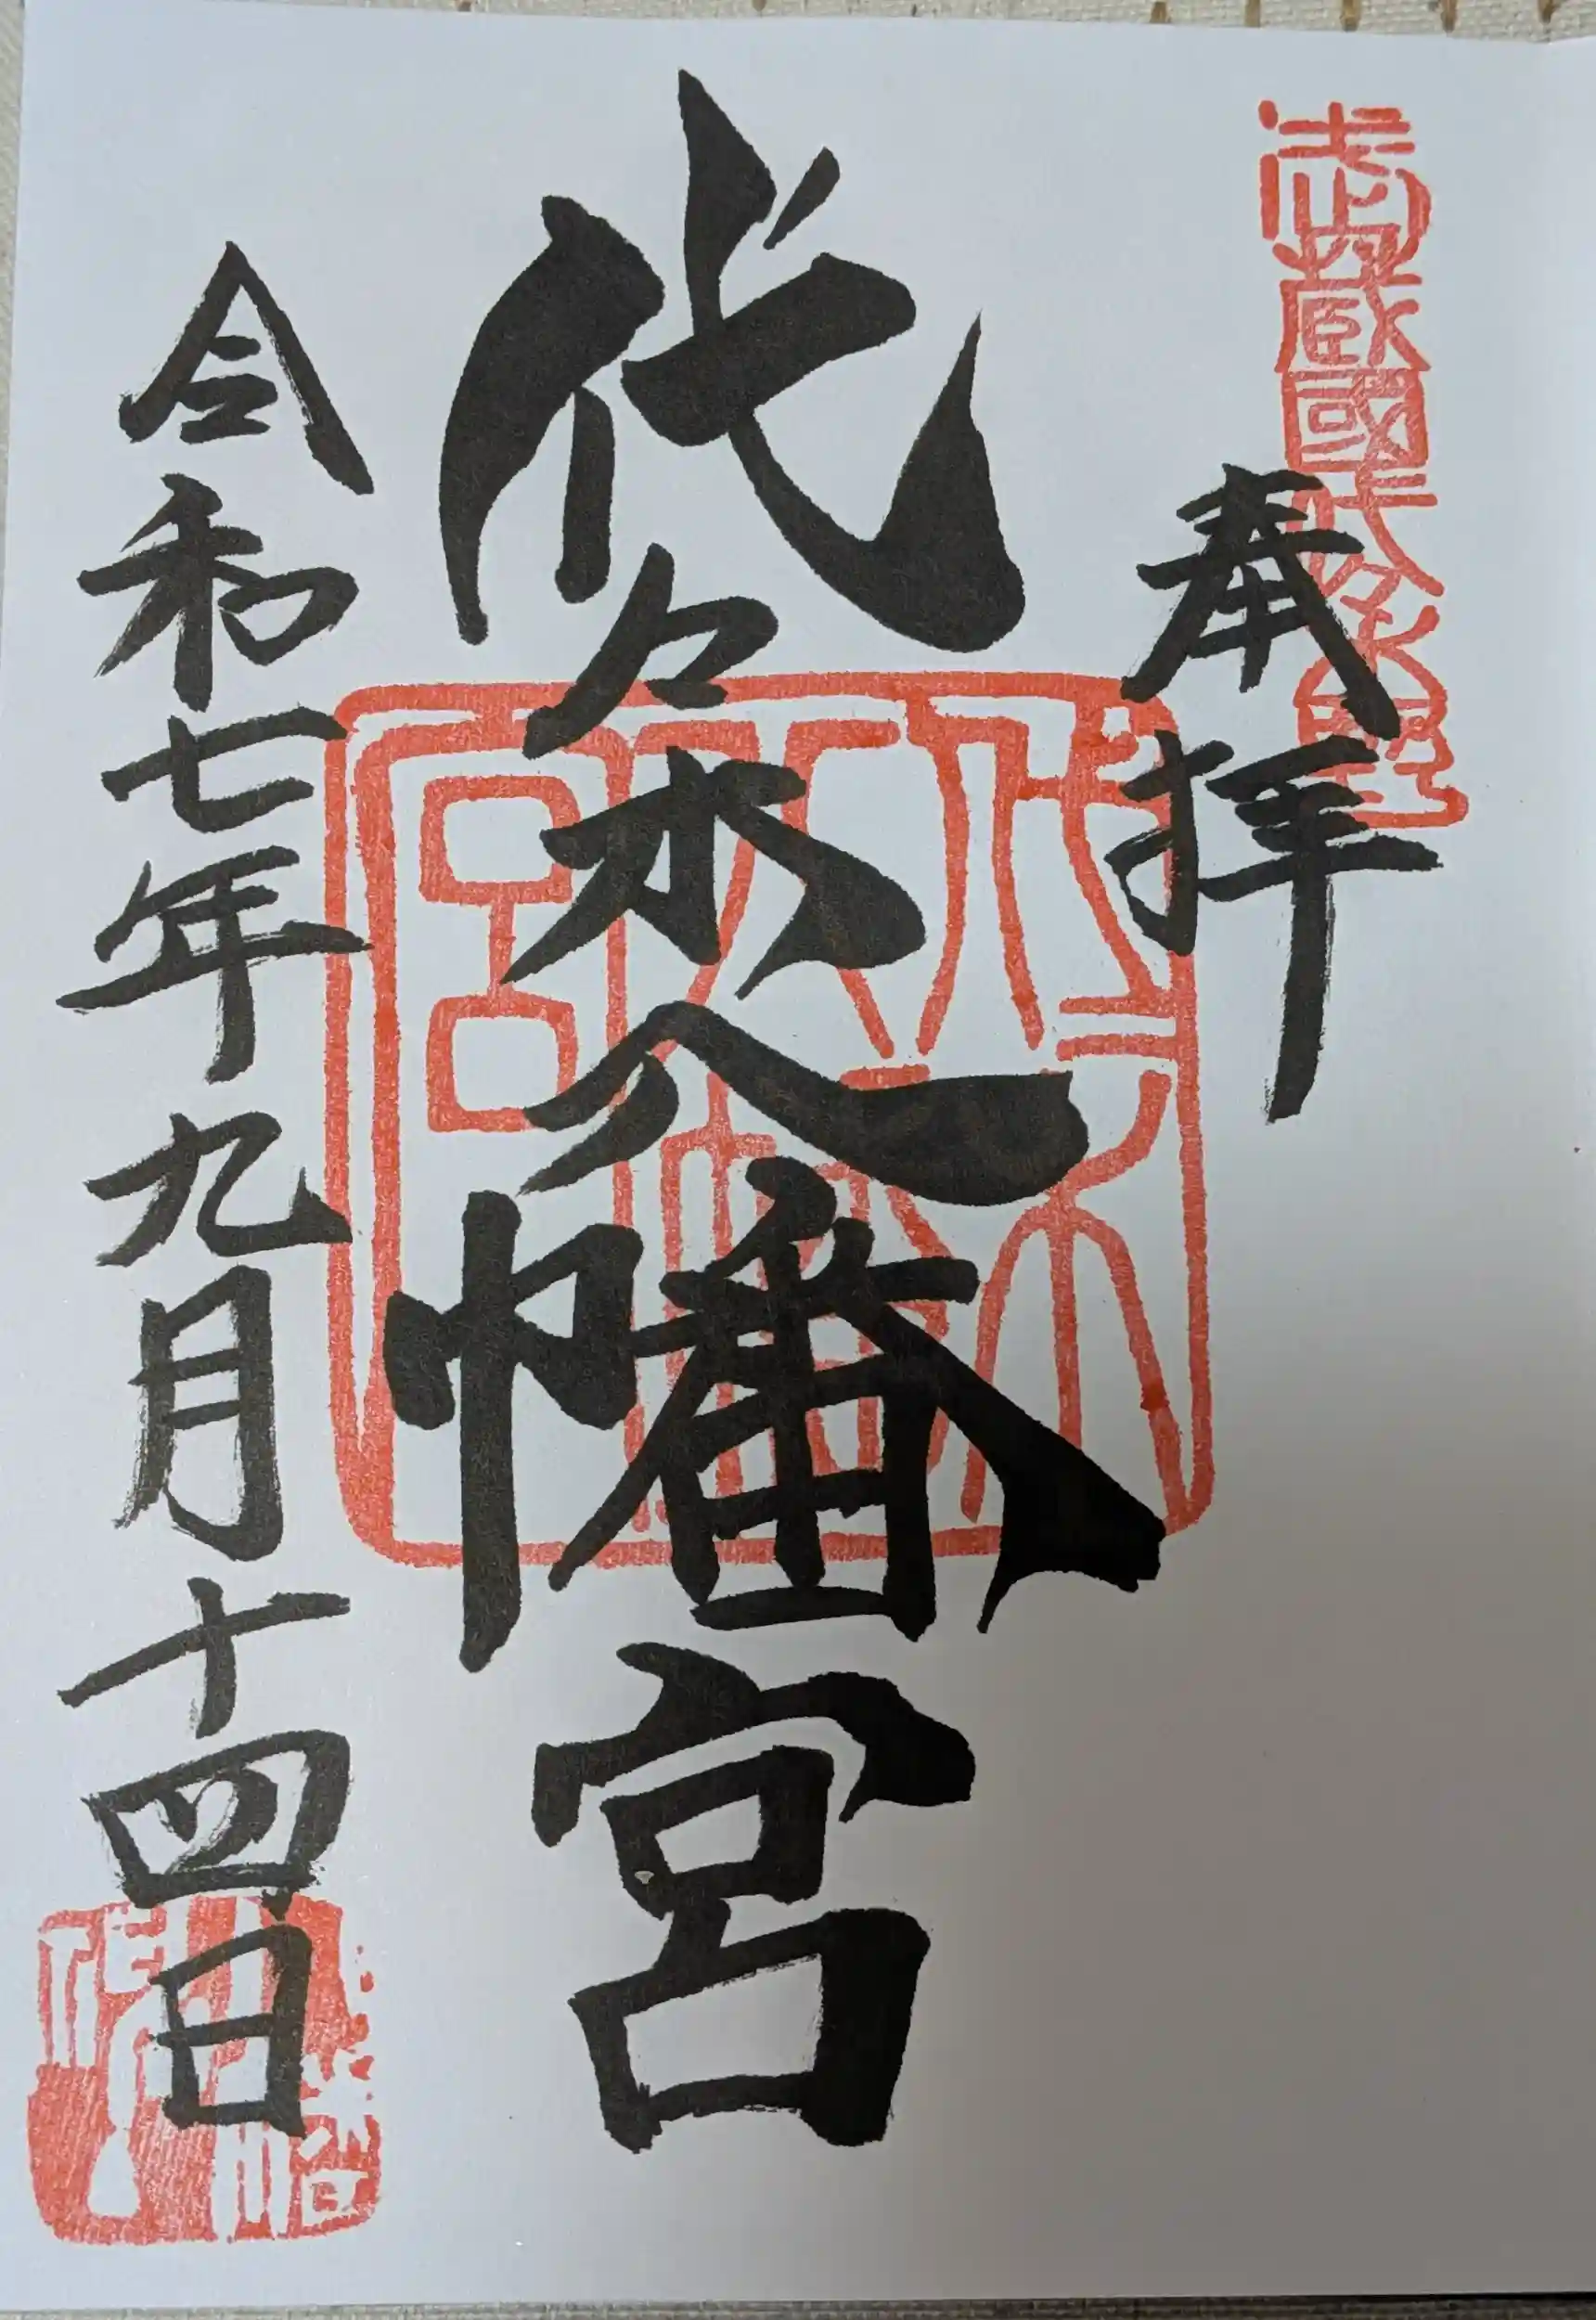 武蔵國代々木野
奉拝
代々木八幡宮
代々木八幡宮
令和七年九月十四日